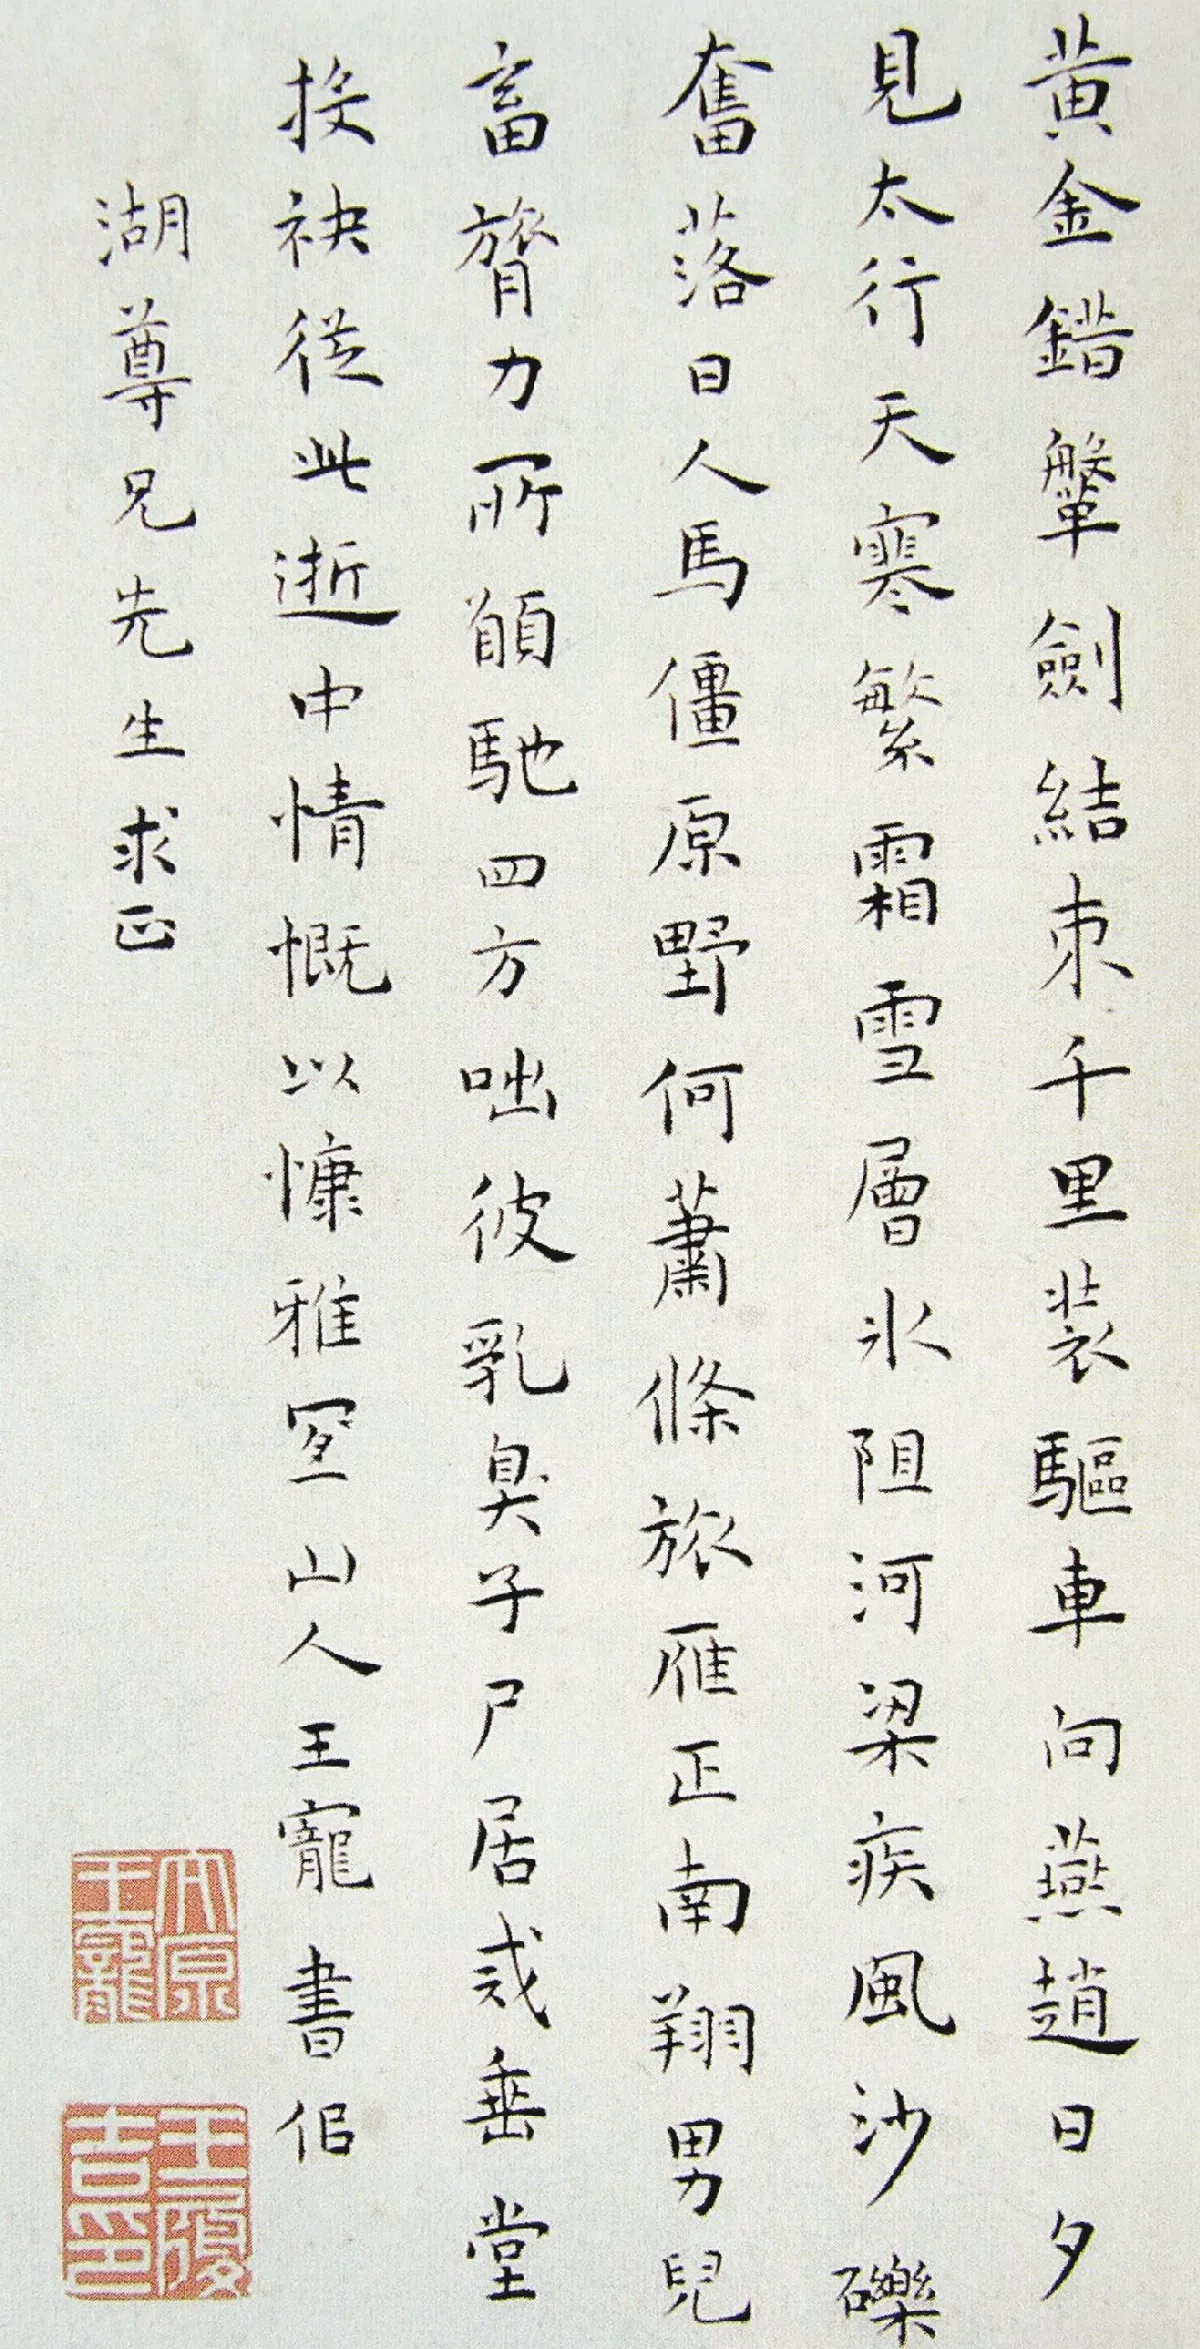 黄金錯鞶劍結束千里装驅車向燕趙日夕
見太行天寒繁霜雪層氷阻河梁疾風沙礫
奮落日人馬僵原野何蕭條旅雁正南翔男兒
畜膂力所願馳四方咄彼乳臭子尸居戒垂堂
投袂從此逝中情慨以慷雅宜山人王寵書似
湖尊兄先生求正
太原王寵
王履吉印